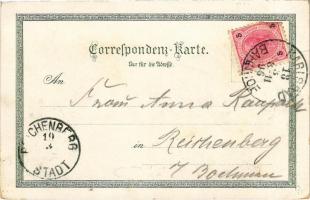 Correspondenz-Karte.
Nur für die Adresse
An
Frau Anna
in Reichenberg
i/ Boehmen
REICHENBERG
19
STADT